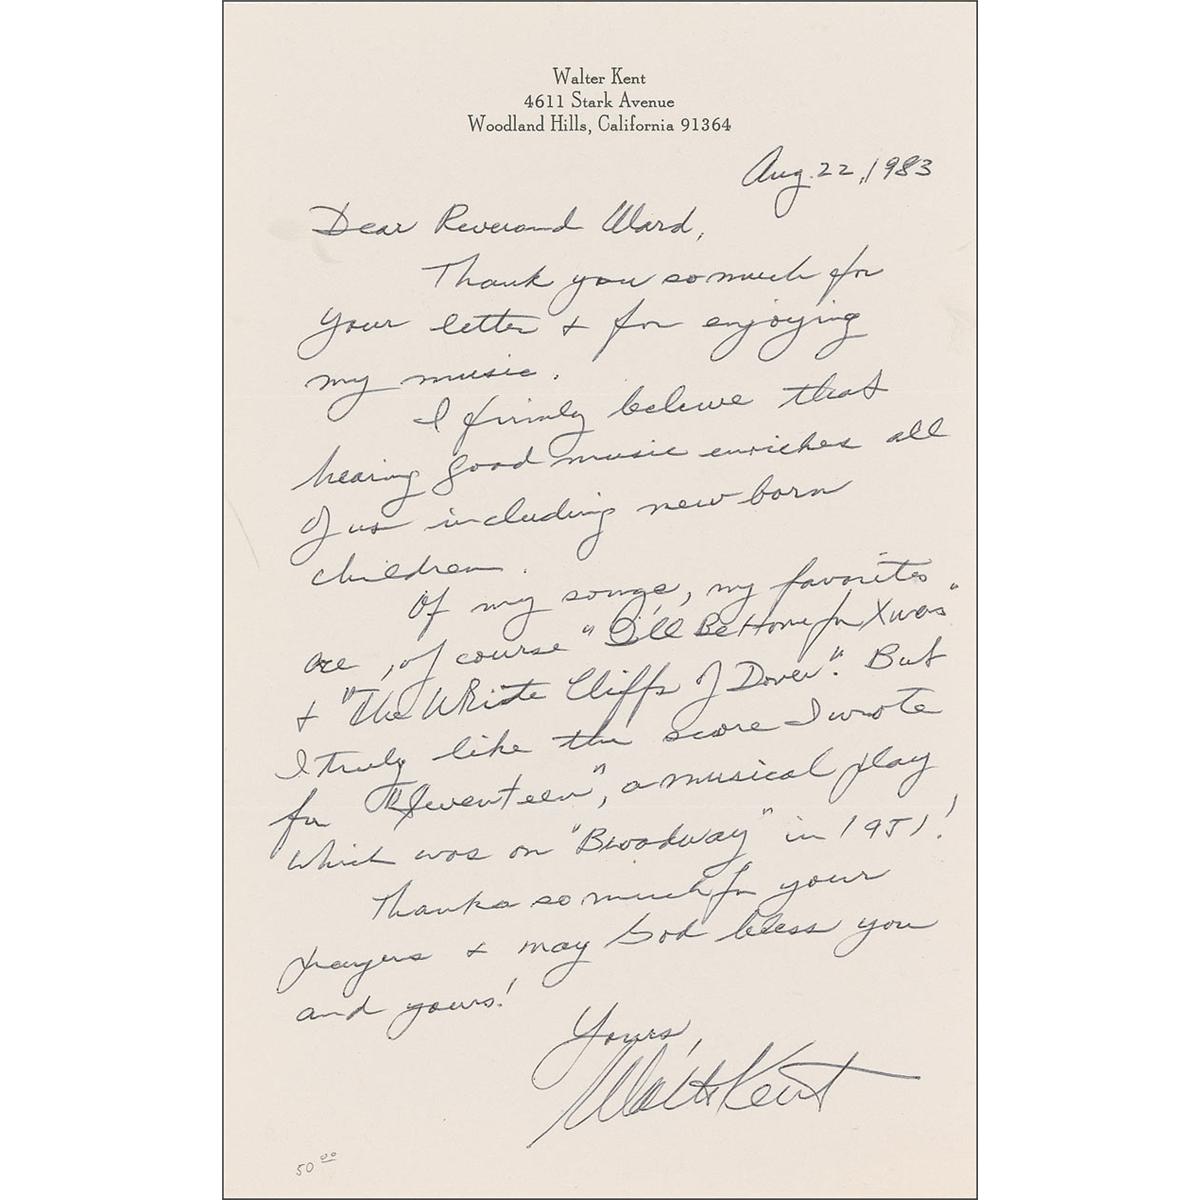 Walter Kent
4611 Stark Avenue
Woodland Hills, California 91364
Aug. 22, 1983
Dear Reverand Ward,
Thank you so much for
your letter & for enjoying
my music.
I firmly believe that
hearing good music enriches all
of us including new born
children.
Of my songs, my favorites
are, of course "I'll Be Home for Xmas"
& "The White Cliffs of Dover". But
I truly like the score I wrote
for "Seventeen", a musical play
which was on "Broadway" in 1951!
Thanks so much for your
prayers & may God bless you
and yours!
Yours,
Walter Kent
50 00